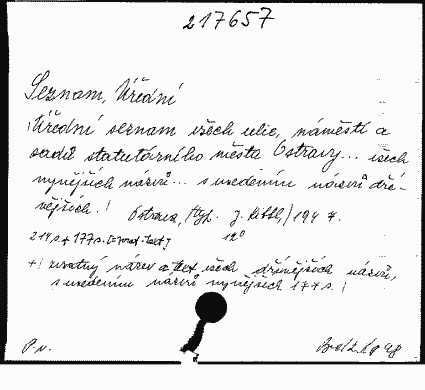 217657
Seznam, Úřední
Úřední seznam všech ulic, náměstí a
sadů statutárního města Ostravy... všech
nynějších názvů... s uvedením názvů dří-
vějších.
Ostrava, (typ. J. Kittl,) 1947.
214 s. + 177 s. 12°
+ názvy a text všech dřívějších názvů,
s uvedením názvů nynějších 177 s.
P. v.
48